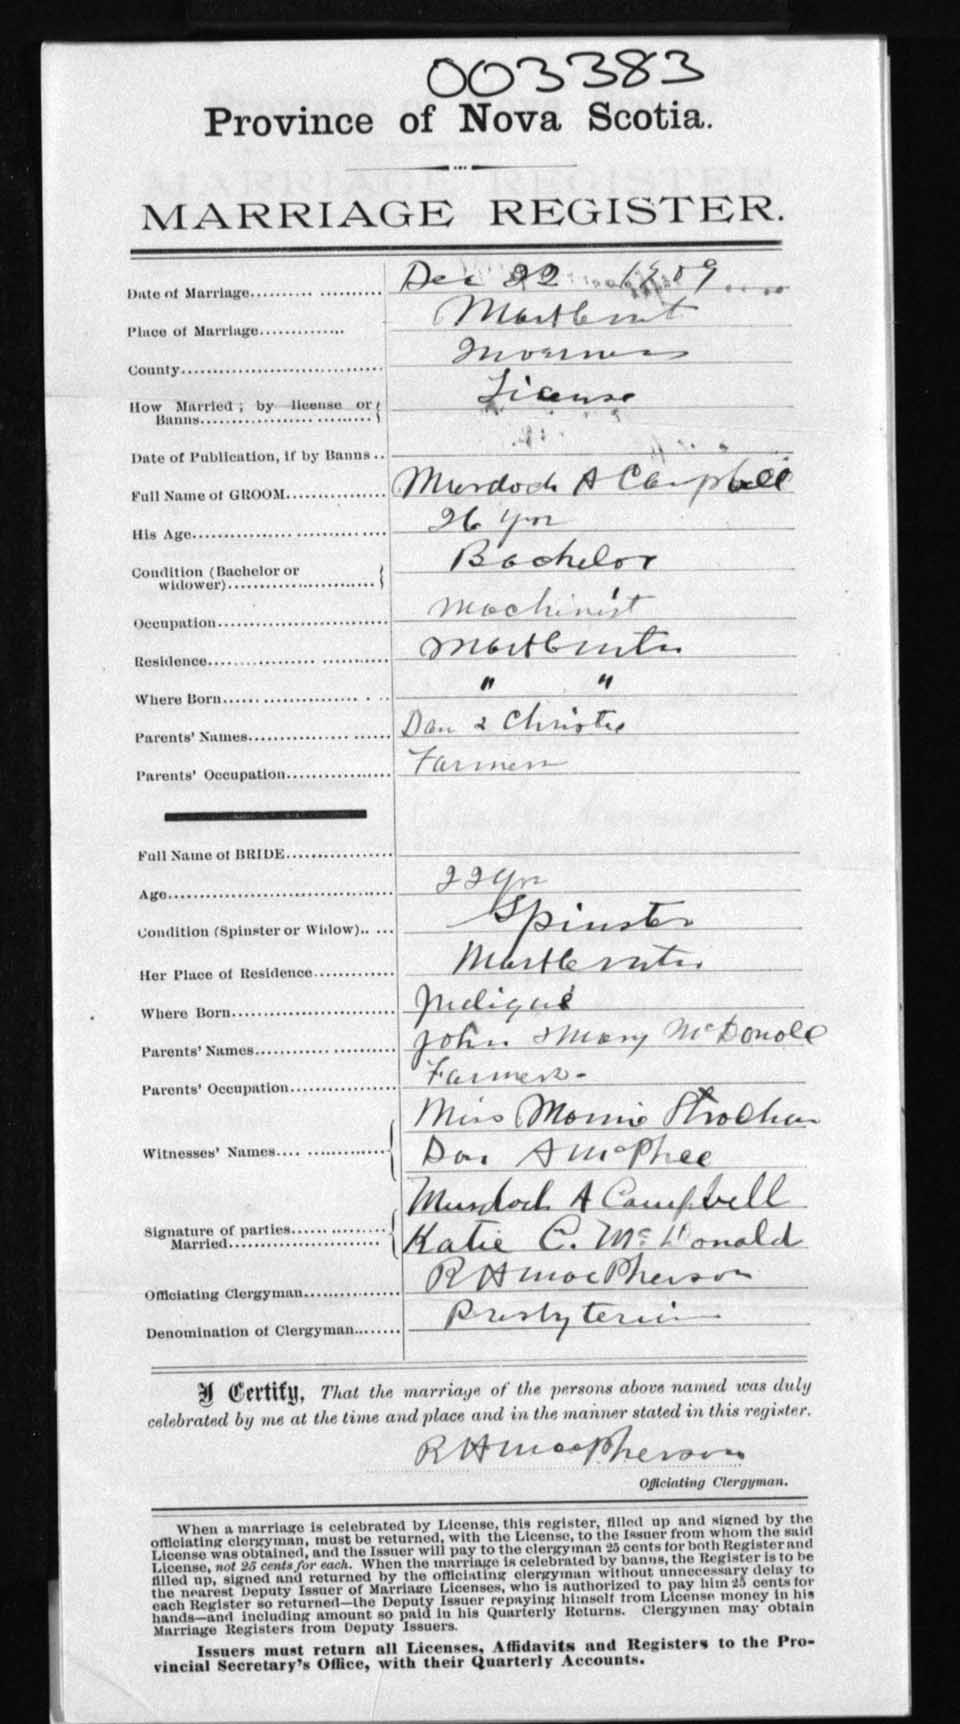 003383
Province of Nova Scotia.
MARRIAGE REGISTER.
Date of Marriage.................... Dec 22 1909
Place of Marriage.............
County................................ Inverness
How Married; by license or License
Banns..........................
Date of Publication, if by Banns..
Full Name of GROOM................ Murdoch A Campbell
His Age............................... 26 yrs
Condition (Bachelor or Bachelor
widower)........................
Occupation........................... Machinist
Residence............................
Where Born.......................... " "
Parents' Names...................... Dan & Christie
Parents' Occupation................. Farmers
Full Name of BRIDE..................
Age.................................. 22 yrs
Condition (Spinster or Widow)..... Spinster
Her Place of Residence.............
Where Born.......................... Judique
Parents' Names...................... John & Mary McDonald
Parents' Occupation................. Farmers -
Witnesses' Names.................. Miss
Dan A McPhee
Signature of parties............... Murdoch A Campbell
Married......................... Katie C. McDonald
Officiating Clergyman............... R H MacPherson
Denomination of Clergyman....... Presbyterian
I Certify, That the marriage of the persons above named was duly
celebrated by me at the time and place and in the manner stated in this register.
R H MacPherson
Officiating Clergyman.
When a marriage is celebrated by License, this register, filled up and signed by the
officiating clergyman, must be returned, with the License, to the Issuer from whom the said
License was obtained, and the Issuer will pay to the clergyman 25 cents for both Register and
License, not 25 cents for each. When the marriage is celebrated by banns, the Register is to be
filled up, signed and returned by the officiating clergyman without unnecessary delay to
the nearest Deputy Issuer of Marriage Licenses, who is authorized to pay him 25 cents for
each Register so returned—the Deputy Issuer repaying himself from License money in his
hands—and including amount so paid in his Quarterly Returns. Clergymen may obtain
Marriage Registers from Deputy Issuers.
Issuers must return all Licenses, Affidavits and Registers to the Pro-
vincial Secretary's Office, with their Quarterly Accounts.